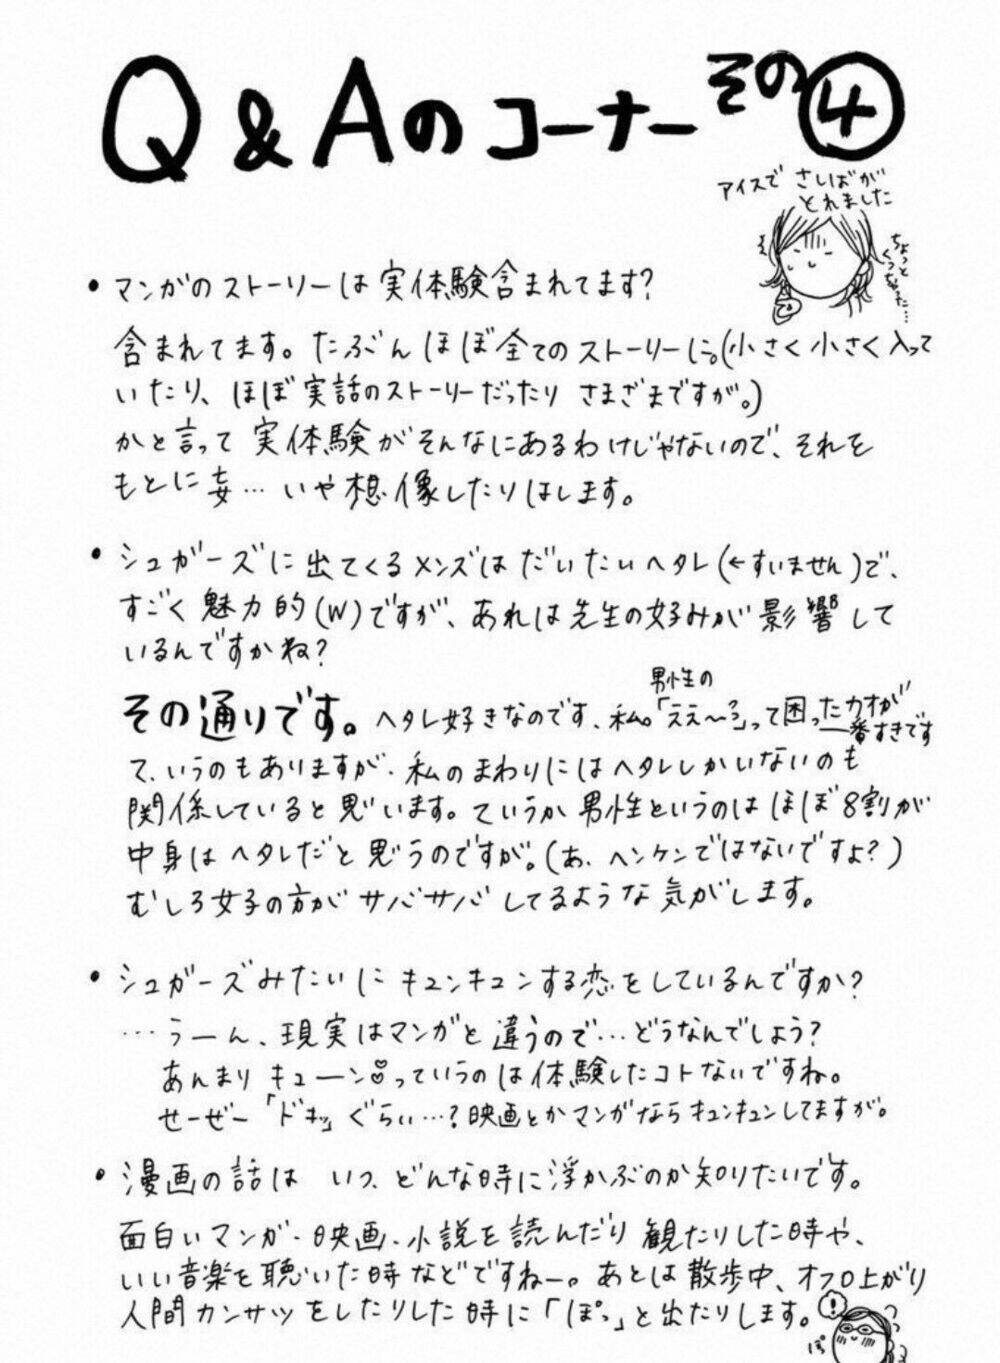 Q&Aのコーナーその④
アイスで さしばが
とれました
ちょっと
くっちゃった…
・マンガのストーリーは実体験含まれてます?
含まれてます。たぶんほぼ全てのストーリーに。(小さく小さく入って
いたり、ほぼ実話のストーリーだったり さまざまですが。)
かと言って 実体験がそんなにあるわけじゃないので、それを
もとに妄…いや想像したりはします。
・シュガーズに出てくるメンズはだいたいヘタレ(←すいません)で、
すごく魅力的(W)ですが、あれは先生の好みが影響して
いるんですかね?
その通りです。ヘタレ好きなのです、私。男性の「ええ〜?」って困ったカオが
一番すきです
て、いうのもありますが、私のまわりにはヘタレしかいないのも
関係していると思います。ていうか男性というのはほぼ8割が
中身はヘタレだと思うのですが。(あ、ヘンケンではないですよ?)
むしろ女子の方がサバサバしてるような気がします。
・シュガーズみたいにキュンキュンする恋をしているんですか?
…うーん、現実はマンガと違うので…どうなんでしょう?
あんまりキューン♡っていうのは体験したコトないですね。
せーぜー「ドキッ」ぐらい…?映画とかマンガならキュンキュンしてますが。
・漫画の話は いつ、どんな時に浮かぶのか知りたいです。
面白いマンガ・映画・小説を読んだり観たりした時や、
いい音楽を聴いた時などですねー。あとは散歩中、オフロ上がり
人間カンサツをしたりした時に「ぽっ」と出たりします。
!
ぽ